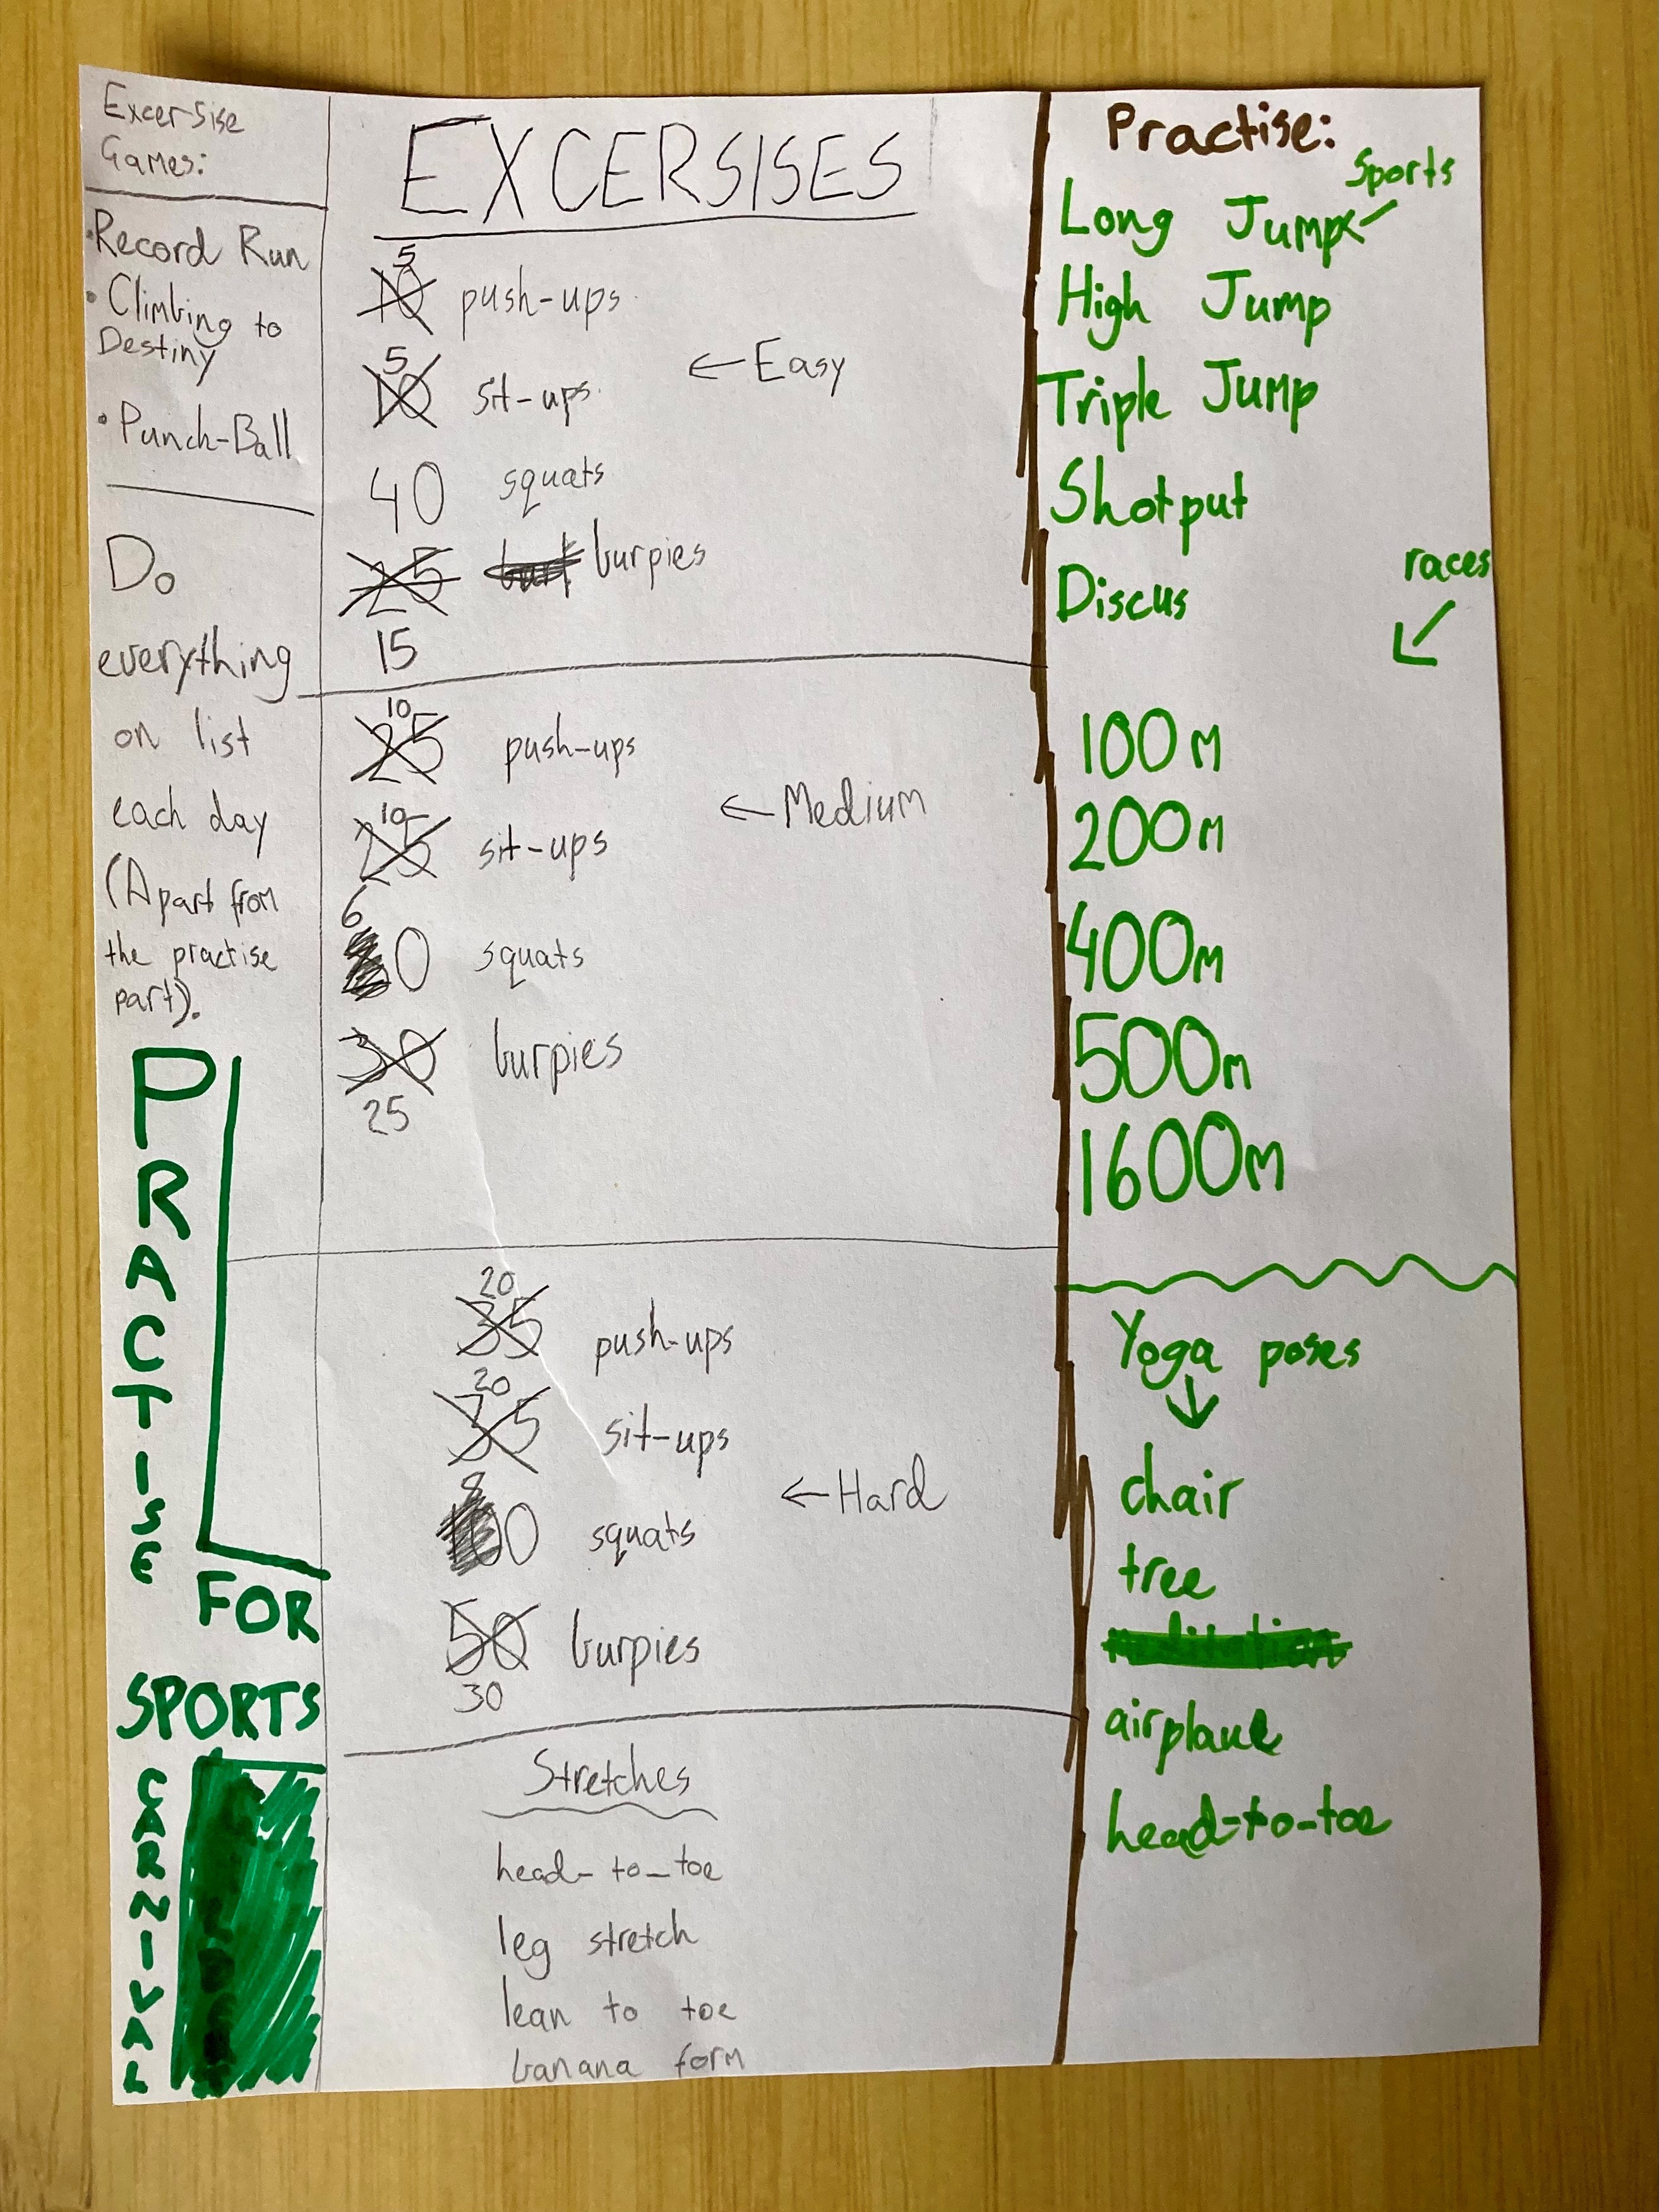 Excersise
Games:
•Record Run
• Climbing to
Destiny
• Punch-Ball
Do
everything
on list
each day
(Apart from
the practise
part).
PRACTISE
FOR
SPORTS
CARNIVAL
EXCERSISES
5
10 push-ups
5
10 sit-ups
← Easy
40 squats
25 burpies
15
10
25 push-ups
10
25 sit-ups
← Medium
6
0 squats
30 burpies
25
20
35 push-ups
20
35 sit-ups
8
100 squats
← Hard
50 burpies
30
Stretches
head-to-toe
leg stretch
lean to toe
banana form
Practise:
Sports
Long Jump
High Jump
Triple Jump
Shotput
Discus
races
100m
200m
400m
500m
1600m
Yoga poses
chair
tree
airplane
head-to-toe